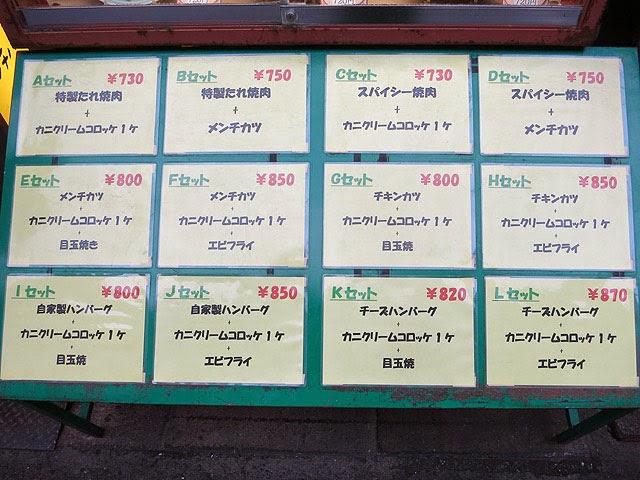 720円
720円
Aセット ¥730
特製たれ焼肉
+
カニクリームコロッケ1ケ
Bセット ¥750
特製たれ焼肉
+
メンチカツ
Cセット ¥730
スパイシー焼肉
+
カニクリームコロッケ1ケ
Dセット ¥750
スパイシー焼肉
+
メンチカツ
Eセット ¥800
メンチカツ
+
カニクリームコロッケ1ケ
+
目玉焼き
Fセット ¥850
メンチカツ
+
カニクリームコロッケ1ケ
+
エビフライ
Gセット ¥800
チキンカツ
+
カニクリームコロッケ1ケ
+
目玉焼
Hセット ¥850
チキンカツ
+
カニクリームコロッケ1ケ
+
エビフライ
Iセット ¥800
自家製ハンバーグ
+
カニクリームコロッケ1ケ
+
目玉焼
Jセット ¥850
自家製ハンバーグ
+
カニクリームコロッケ1ケ
+
エビフライ
Kセット ¥820
チーズハンバーグ
+
カニクリームコロッケ1ケ
+
目玉焼
Lセット ¥870
チーズハンバーグ
+
カニクリームコロッケ1ケ
+
エビフライ